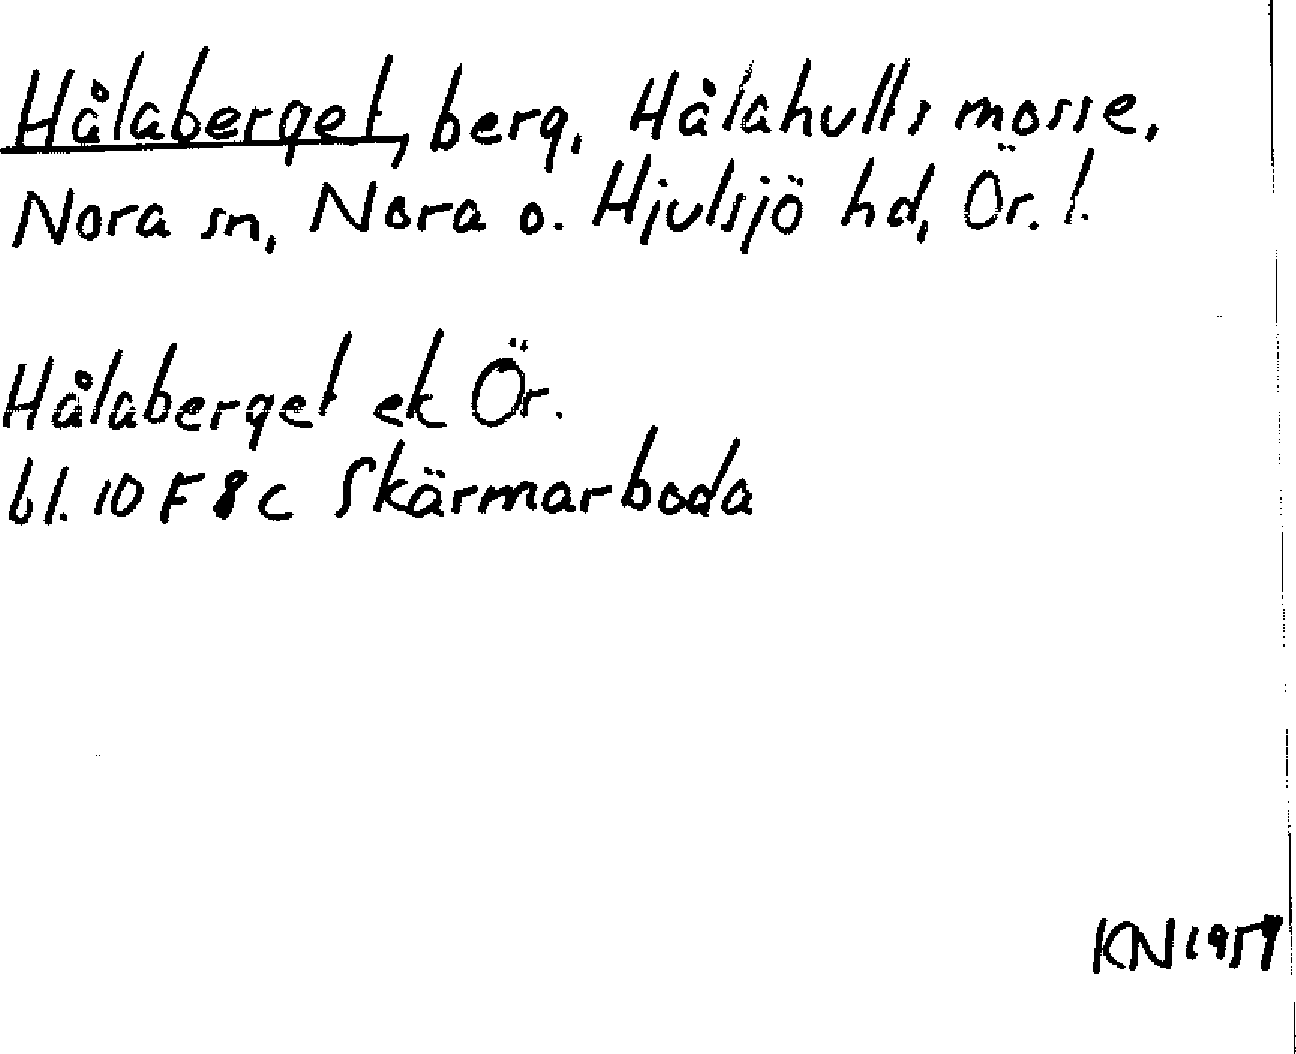 Hålaberget, berg, Hålahults mosse,
Nora sn, Nora o. Hjulsjö hd, Ör. l.
Hålaberget ek Ör.
bl. 10 F 8 c Skärmarboda
KN